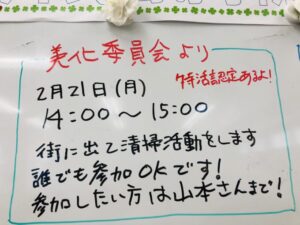 美化委員会より
特活認定あるよ!
2月21日(月)
14:00〜15:00
街に出て清掃活動をします
誰でも参加OKです!
参加したい方は山本さんまで!